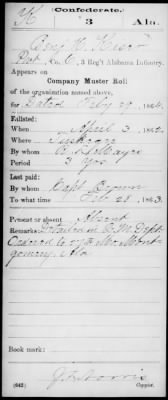 Confederate.
K 3 Ala.
Benj. H.
Pvt, Co. C, 3 Reg't Alabama Infantry.
Appears on
Company Muster Roll
of the organization named above,
for Dated Feby 29, 1864.
Enlisted:
When April 3, 186
Where Tuskegee
By whom Mayes
Period 3 yrs
Last paid:
By whom Capt. Brown
To what time Feb 28, 1863.
Present or absent Absent
Remarks: Detailed in Q. M. Dept.
Ordered to Mont-
gomery, Ala
Book mark:
(642) Copyist.